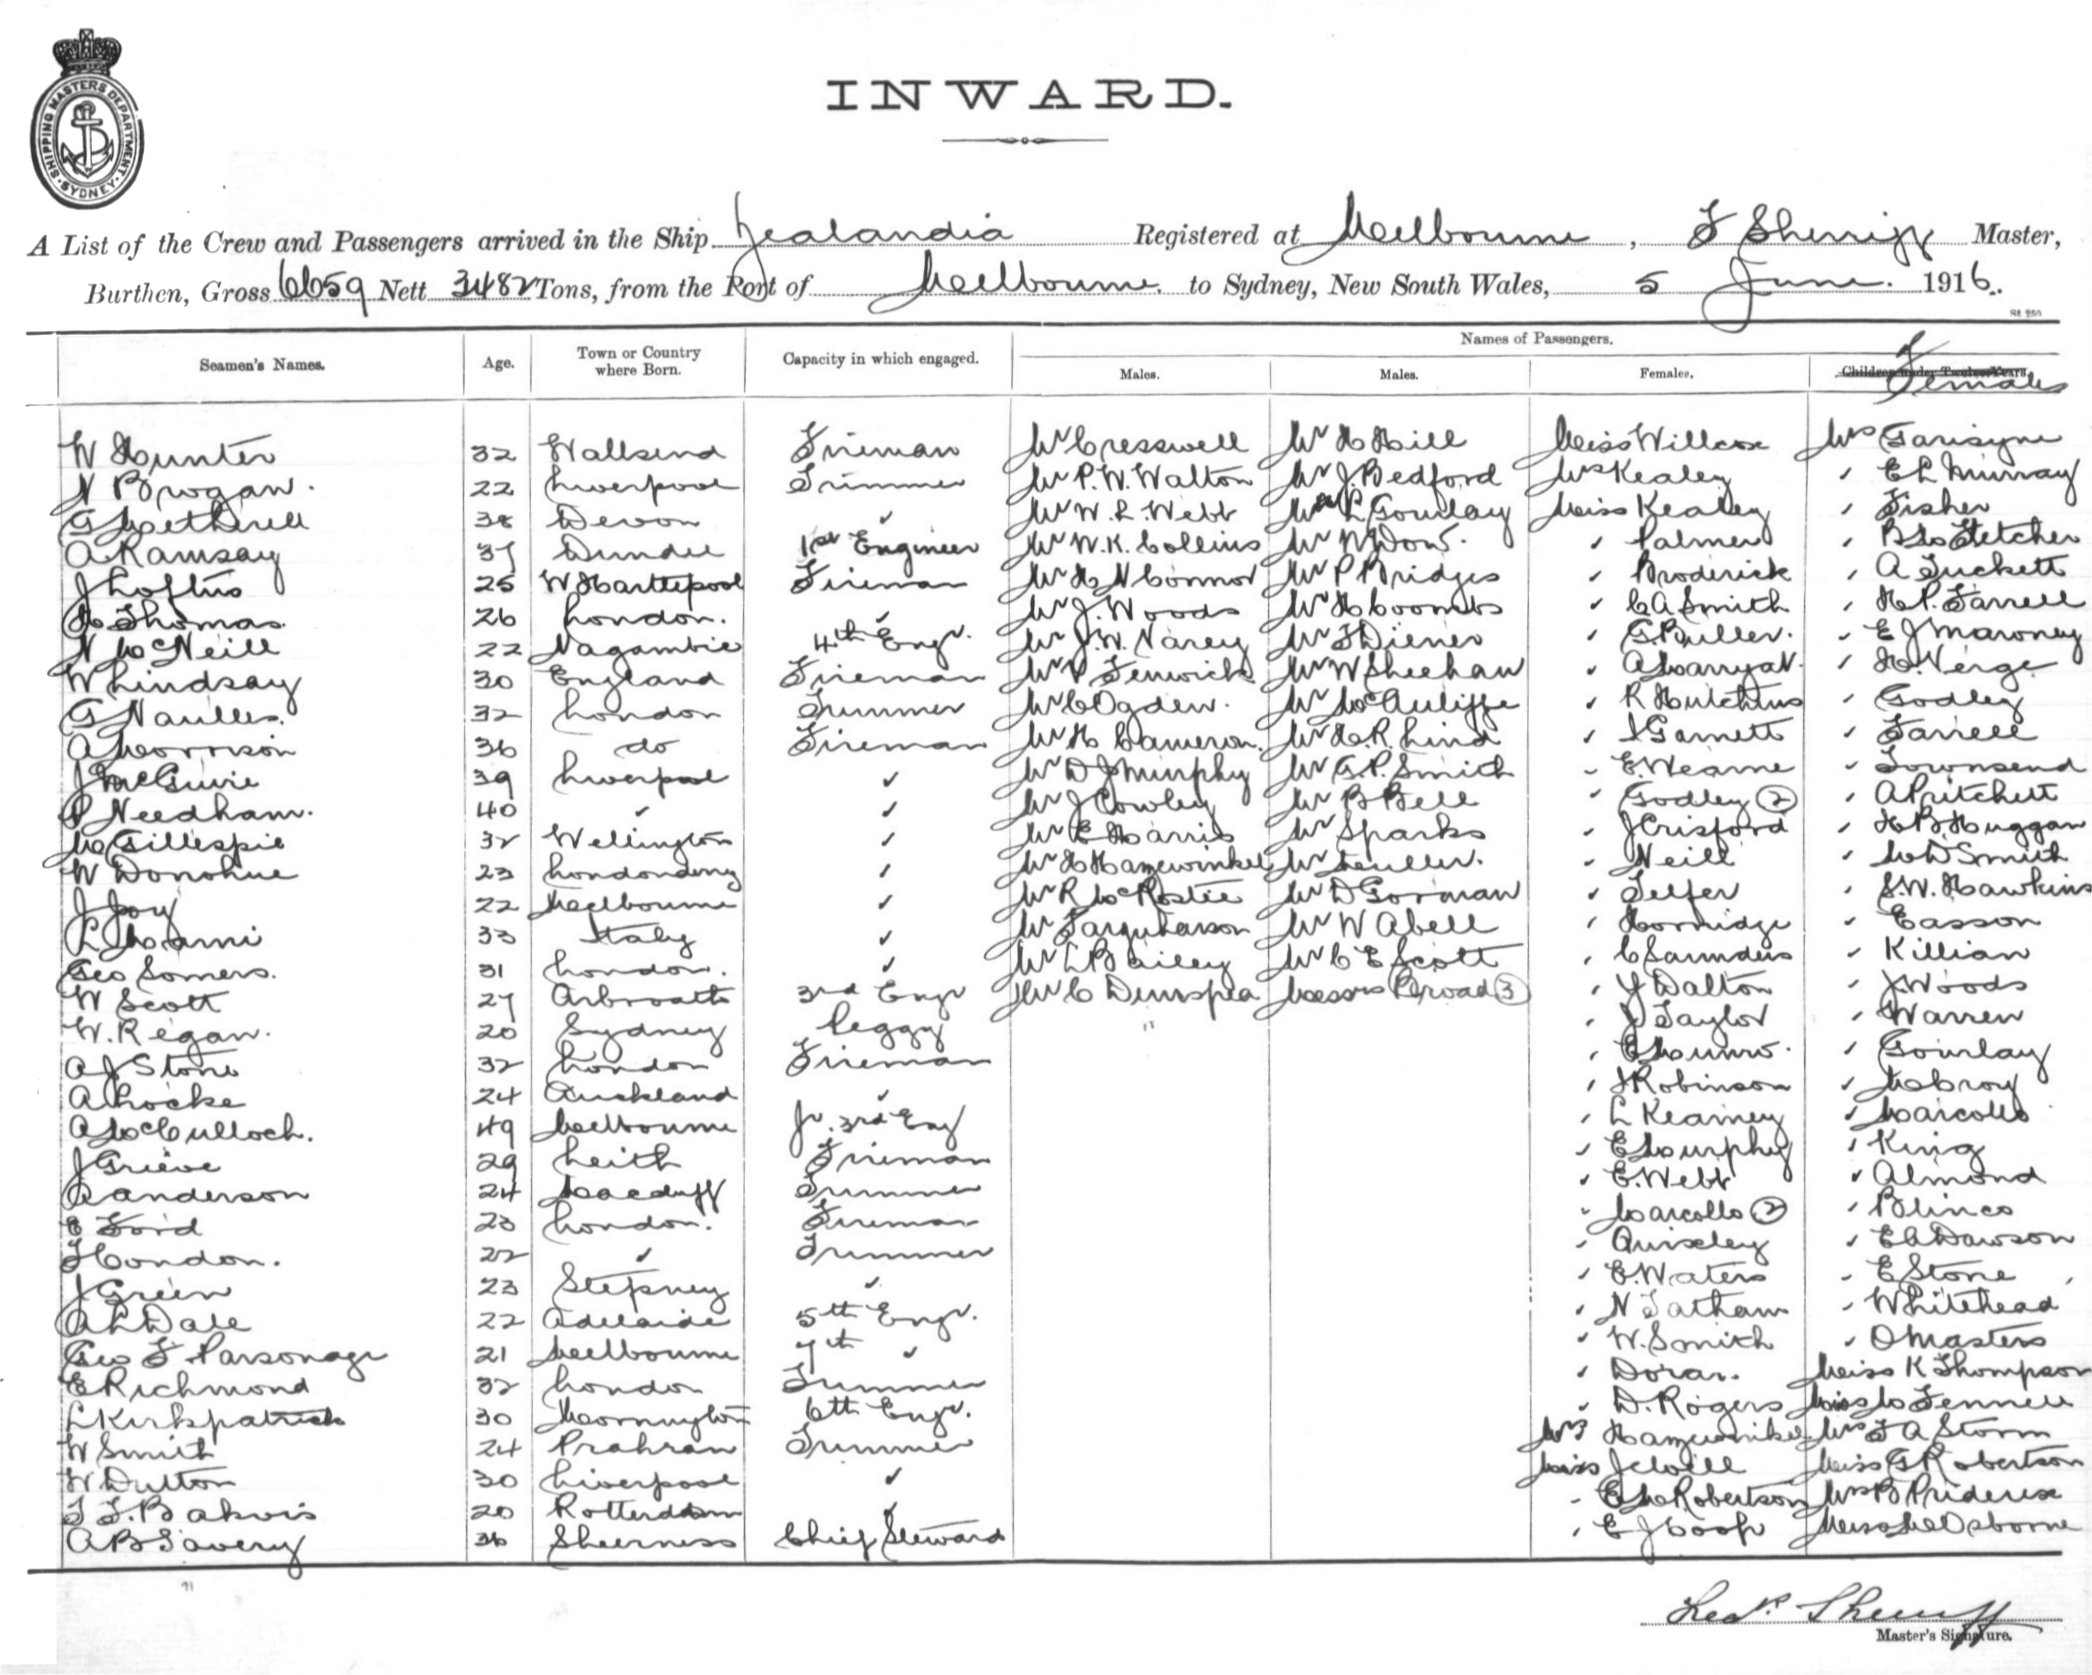 SHIPPING MASTERS DEPARTMENT
SYDNEY
INWARD.
A List of the Crew and Passengers arrived in the Ship Zealandia Registered at Melbourne, F Sherriff Master,
Burthen, Gross 6659 Nett 3482 Tons, from the Port of Melbourne. to Sydney, New South Wales, 5 June. 1916.
Names of Passengers.
Seamen's Names. Age. Town or Country where Born. Capacity in which engaged. Males. Males. Females. Children under Twelve Years. Females
W Hunter 32 Wallsend Fireman Mr Cresswell Mr H Hill Miss Willcox Mrs
N Brogan. 22 Liverpool Trimmer Mr P.W. Walton Mr J. Bedford Mrs Kealey E L Murray
G Metherell 38 Devon ✓ Mr W. L. Webb Mr L Gourlay Miss Kealey Fisher
A Ramsay 37 Dundee 1st Engineer Mr W.K. Collins Mr W Dow. Palmer B McFletcher
J Loftus 25 W Hartlepool Fireman Mr H N Connor Mr P Bridges Broderick A Tuckett
H Thomas 26 London. ✓ Mr J. Woods Mr H Coombs C A Smith H.P. Farrell
N McNeill 22 Nagambie 4th Engr. Mr J.W. Narey Mr F Diener G Buller. E J Maroney
W Lindsay 30 England Fireman Mr V Fenwick Mr W Sheehan A Marryat. H. Verge
G Naulles. 32 London Trimmer Mr C Ogden. Mr McAuliffe R Hutchins Godley
A Morrison 36 do Fireman Mr H Cameron. Mr H.R. Lind I Garnett Farrell
J McGuire 39 Liverpool ✓ Mr D J Murphy Mr G.P. Smith E. Hearne Townsend
P Needham. 40 ✓ ✓ Mr J Cowley Mr B Bell Godley (2) A Pritchett
M Gillespie 32 Wellington ✓ Mr E Harris Mr Sparks J Crisford H B Huggan
W Donohue 23 Londonderry ✓ Mr H Hazewinkel Mr Neill M D Smith
J Joy 22 Melbourne ✓ Mr R McRostie Mr D Gorman Telfer S.W. Hawkins
L Marni 33 Italy ✓ Mr Farquharson Mr W Abell Horridge Easson
Geo Somers. 31 London. ✓ Mr L Bailey Mr C E Scott C Saunders Killian
W Scott 27 Arbroath 3rd Engr Mr C Dunspea Messrs Broad (3) Y Dalton J Woods
W. Regan. 20 Sydney Peggy J Taylor Warren
A J Stone 32 London Fireman E Munro. Gourlay
A Locke 24 Auckland ✓ J Robinson McCroy
A McCulloch. 49 Melbourne Jr. 3rd Eng L Kearney Marcollo
J Grieve 29 Leith Fireman E Murphy King
A Anderson 24 Macduff Trimmer E. Webb Almond
E Ford 23 London. Fireman Marcollo (2) Blinco
F Condon. 22 ✓ Trimmer Quixley E A Dawson
J Green 23 Stepney ✓ E. Waters E Stone
A L Dale 22 Adelaide 5th Engr. N Tatham Whitehead
Geo F Parsonage 21 Melbourne 7th ✓ W. Smith O Masters
E Richmond 32 London Trimmer Doran. Miss K Thompson
L Kirkpatrick 30 Mornington 6th Engr. D. Rogers Miss M Fennell
W Smith 24 Prahran Trimmer Mrs Hazewinkel Mrs F A Storm
W Dutton 30 Liverpool ✓ Miss J Weill Miss G Robertson
T F. Bakvis 20 Rotterdam ✓ E M Robertson Mrs B Prideux
A B Savery 36 Sheerness Chief Steward E J Coop Miss M Osborne
Sherriff
Master's Signature.